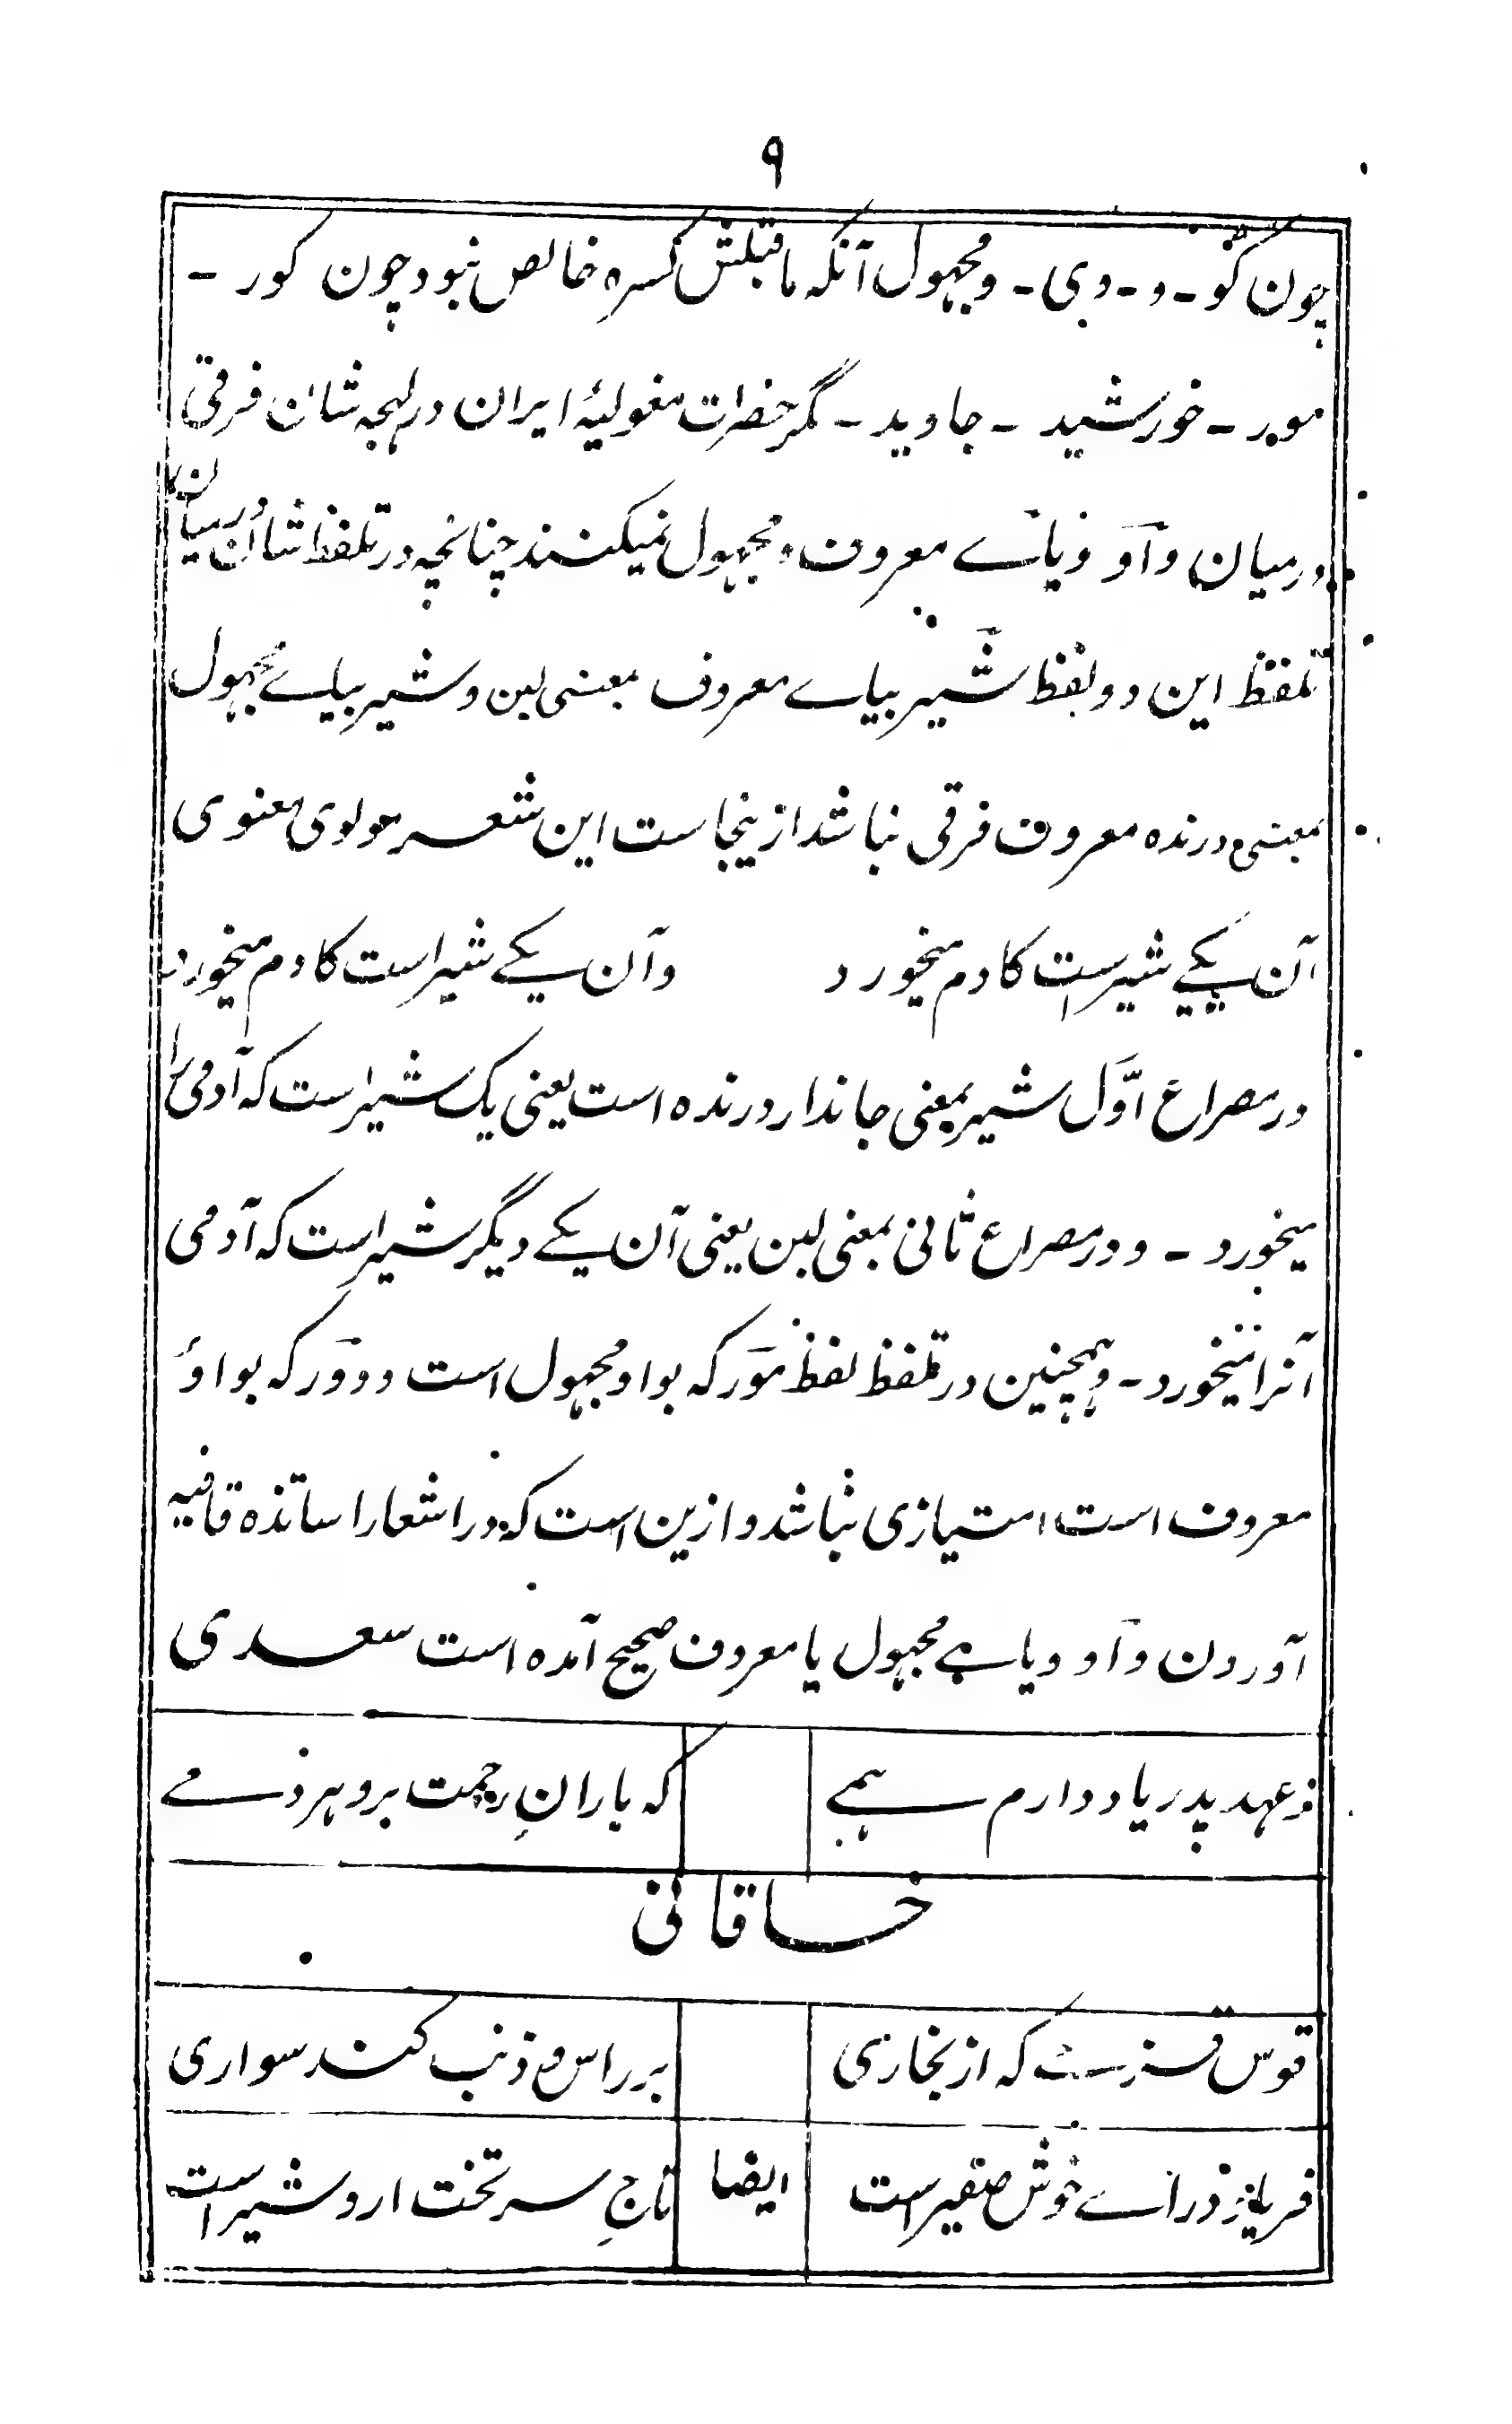 ۹
چون گو - و - و بی - و مجهول آنکه ماقبلش کسره خالص نبود چون کور -
مور - خورشید - جاوید - مگر حضرات مغولیهٔ ایران در لهجه شان فرقی
درمیان واو و یائے معروف و مجهول نمیکنند چنانچه در تلفظ شان درمیان
تلفظ این دو لفظ شیر بیاے معروف بمعنی لبن و شیر بیاے مجهول
بمعنی درنده معروف فرقی نباشد ازینجاست این شعر مولوی معنوی
آن یکے شیرست کادم میخورد وآن یکے شیر است کادم میخورد
در مصراع اوّل شیر بمعنی جاندار درنده است یعنی یک شیر است که آدمی را
میخورد - و در مصراع ثانی بمعنی لبن یعنی آن یکے دیگر شیر است که آدمی
آنرا میخورد - و همچنین در تلفظ لفظ مور که بواو مجهول است و دور که بواوٴ
معروف است امتیازی نباشد و ازین است که در اشعار اساتذه قافیه
آوردن واو و یاے مجهول با معروف صحیح آمده است سعدی
ز عهد پدر یاد دارم همے که باران رحمت برو هر دمے
خاقانی
قوس قزحست که از بخاری بر راس و ذنب کند سواری
خوش صفیر است ایضا تاج سر تخت اردشیر است